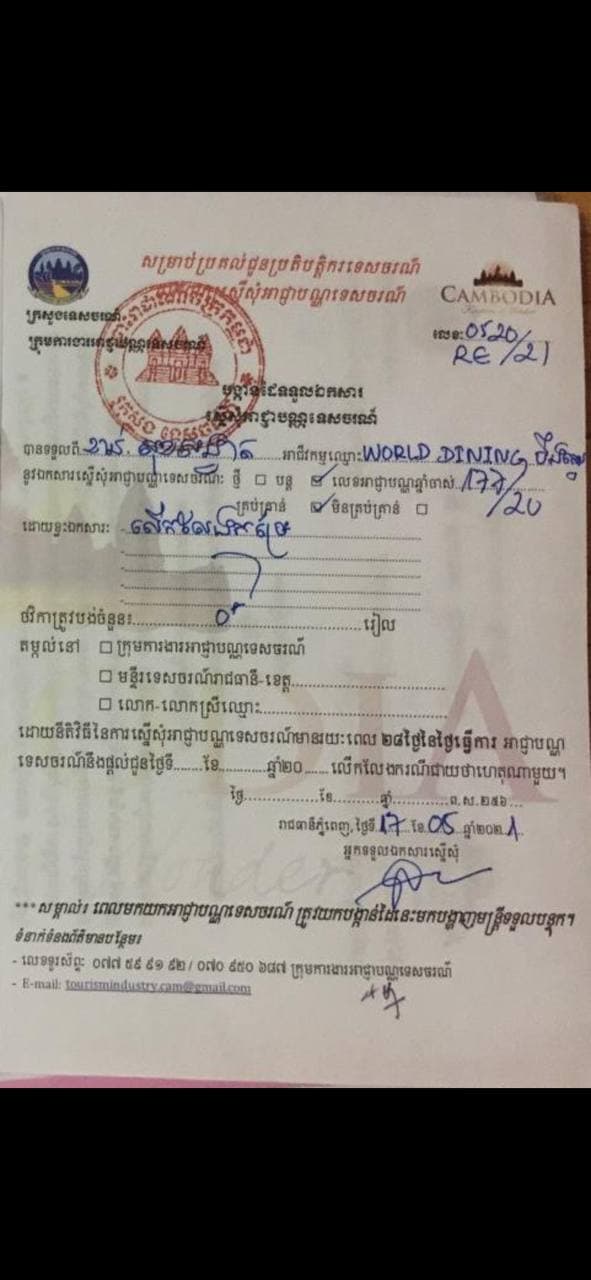 សម្រាប់ប្រគល់ជូនប្រតិបត្តិករទេសចរណ៍
ស្នើសុំអាជ្ញាបណ្ណទេសចរណ៍
CAMBODIA
Kingdom of Wonder
ក្រសួងទេសចរណ៍
ក្រុមការងារអាជ្ញាបណ្ណទេសចរណ៍
លេខ: 0520
RE/21
បង្កាន់ដៃទទួលឯកសារ
ស្នើសុំអាជ្ញាបណ្ណទេសចរណ៍
បានទទួលពី ........ អាជីវកម្មឈ្មោះ WORLD DINING
នូវឯកសារស្នើសុំអាជ្ញាបណ្ណទេសចរណ៍: ថ្មី ☐ បន្ត ☑ លេខអាជ្ញាបណ្ណឆ្នាំចាស់ 177/20
គ្រប់គ្រាន់ ☑ មិនគ្រប់គ្រាន់ ☐
ដោយខ្វះឯកសារ: -
ថវិកាត្រូវបង់ចំនួន៖ ........ រៀល
តម្កល់នៅ ☐ ក្រុមការងារអាជ្ញាបណ្ណទេសចរណ៍
☐ មន្ទីរទេសចរណ៍រាជធានី-ខេត្ត........
☐ លោក-លោកស្រីឈ្មោះ........
ដោយនីតិវិធីនៃការស្នើសុំអាជ្ញាបណ្ណទេសចរណ៍មានរយៈពេល ២៨ថ្ងៃនៃថ្ងៃធ្វើការ អាជ្ញាបណ្ណ
ទេសចរណ៍នឹងផ្តល់ជូនថ្ងៃទី.......ខែ...........ឆ្នាំ២០...... លើកលែងករណីជាយថាហេតុណាមួយ។
ថ្ងៃ..................ខែ..............ឆ្នាំ.............ព.ស.២៥៦...
រាជធានីភ្នំពេញ, ថ្ងៃទី 17 ខែ 05 ឆ្នាំ២០២1
អ្នកទទួលឯកសារស្នើសុំ
***សម្គាល់៖ ពេលមកយកអាជ្ញាបណ្ណទេសចរណ៍ ត្រូវយកបង្កាន់ដៃនេះមកបង្ហាញមន្ត្រីទទួលបន្ទុក។
ទំនាក់ទំនងព័ត៌មានបន្ថែម៖
- លេខទូរស័ព្ទ: ០៧៧ ៥៩ ៩១ ៩២ / ០៧០ ៩៥០ ៦៨៧ ក្រុមការងារអាជ្ញាបណ្ណទេសចរណ៍
- E-mail: tourismindustry.cam@gmail.com